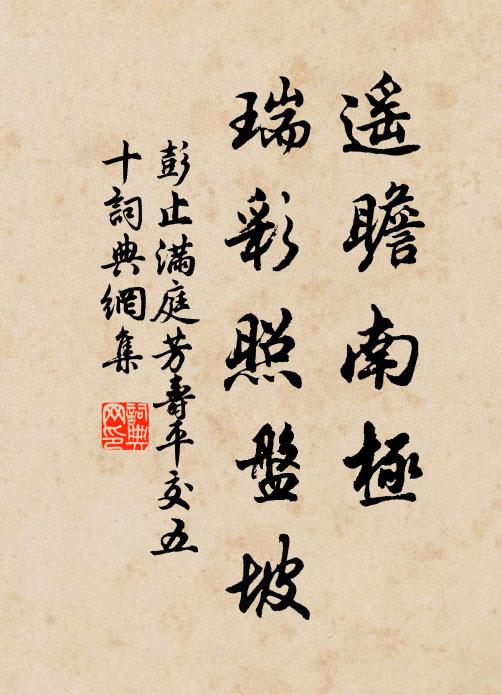 遥瞻南極
瑞彩照盤坡
彭止滿庭芳壽平交五
十詞典網集
詞典
网印